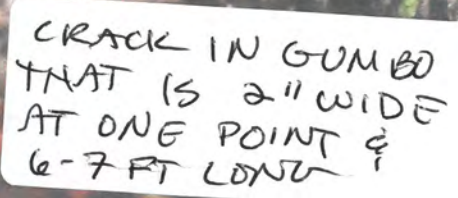 CRACK IN GUMBO
THAT IS 2" WIDE
AT ONE POINT &
6-7 FT LONG